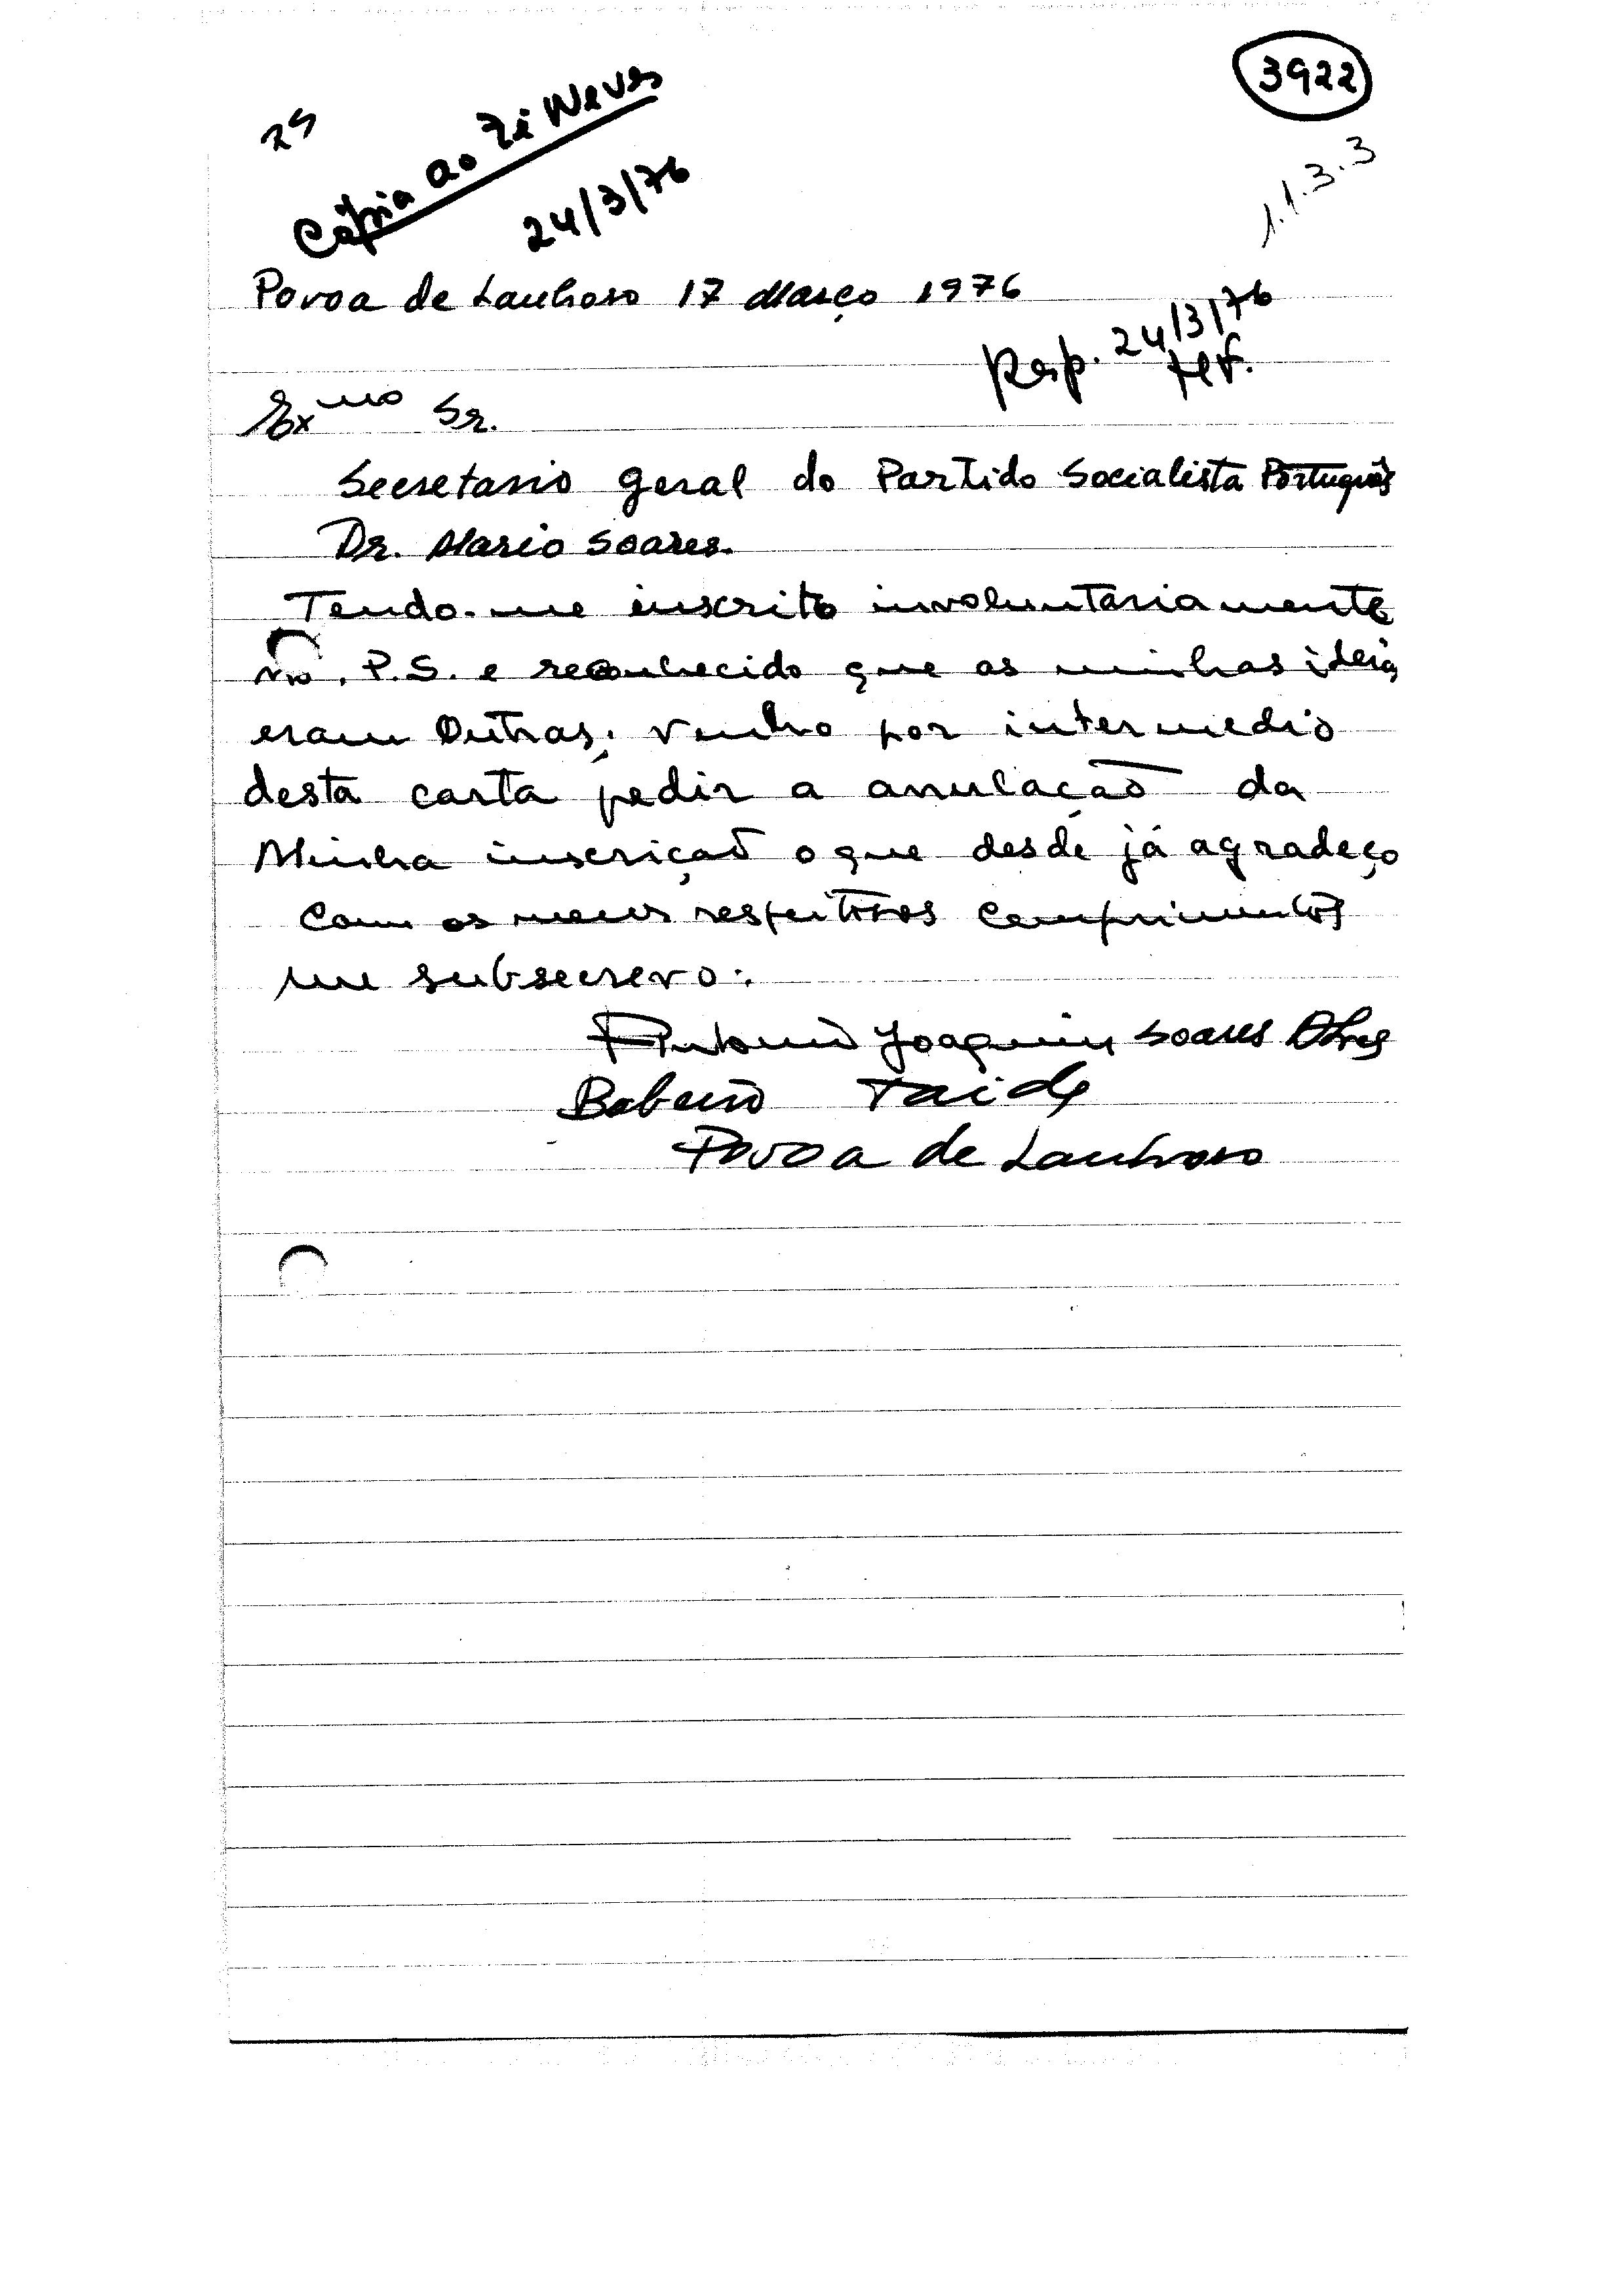 3922
Cópia ao Zé Neves
24/3/76
1.1.3.3
Povoa de Lanhoso 17 Março 1976
Resp. 24/3/76
telf.
Exmo Sr.
Secretario geral do Partido Socialista Português
Dr. Mario Soares.
Tendo-me inscrito involuntariamente
no. P.S. e reconhecido que as minhas ideias
eram outras, venho por intermedio
desta carta pedir a anulação da
Minha inscrição o que desde já agradeço
Com os meus respeitosos comprimentos
me subsecrevo:
Antonio Joaquim Soares
Taide
Povoa de Lanhoso